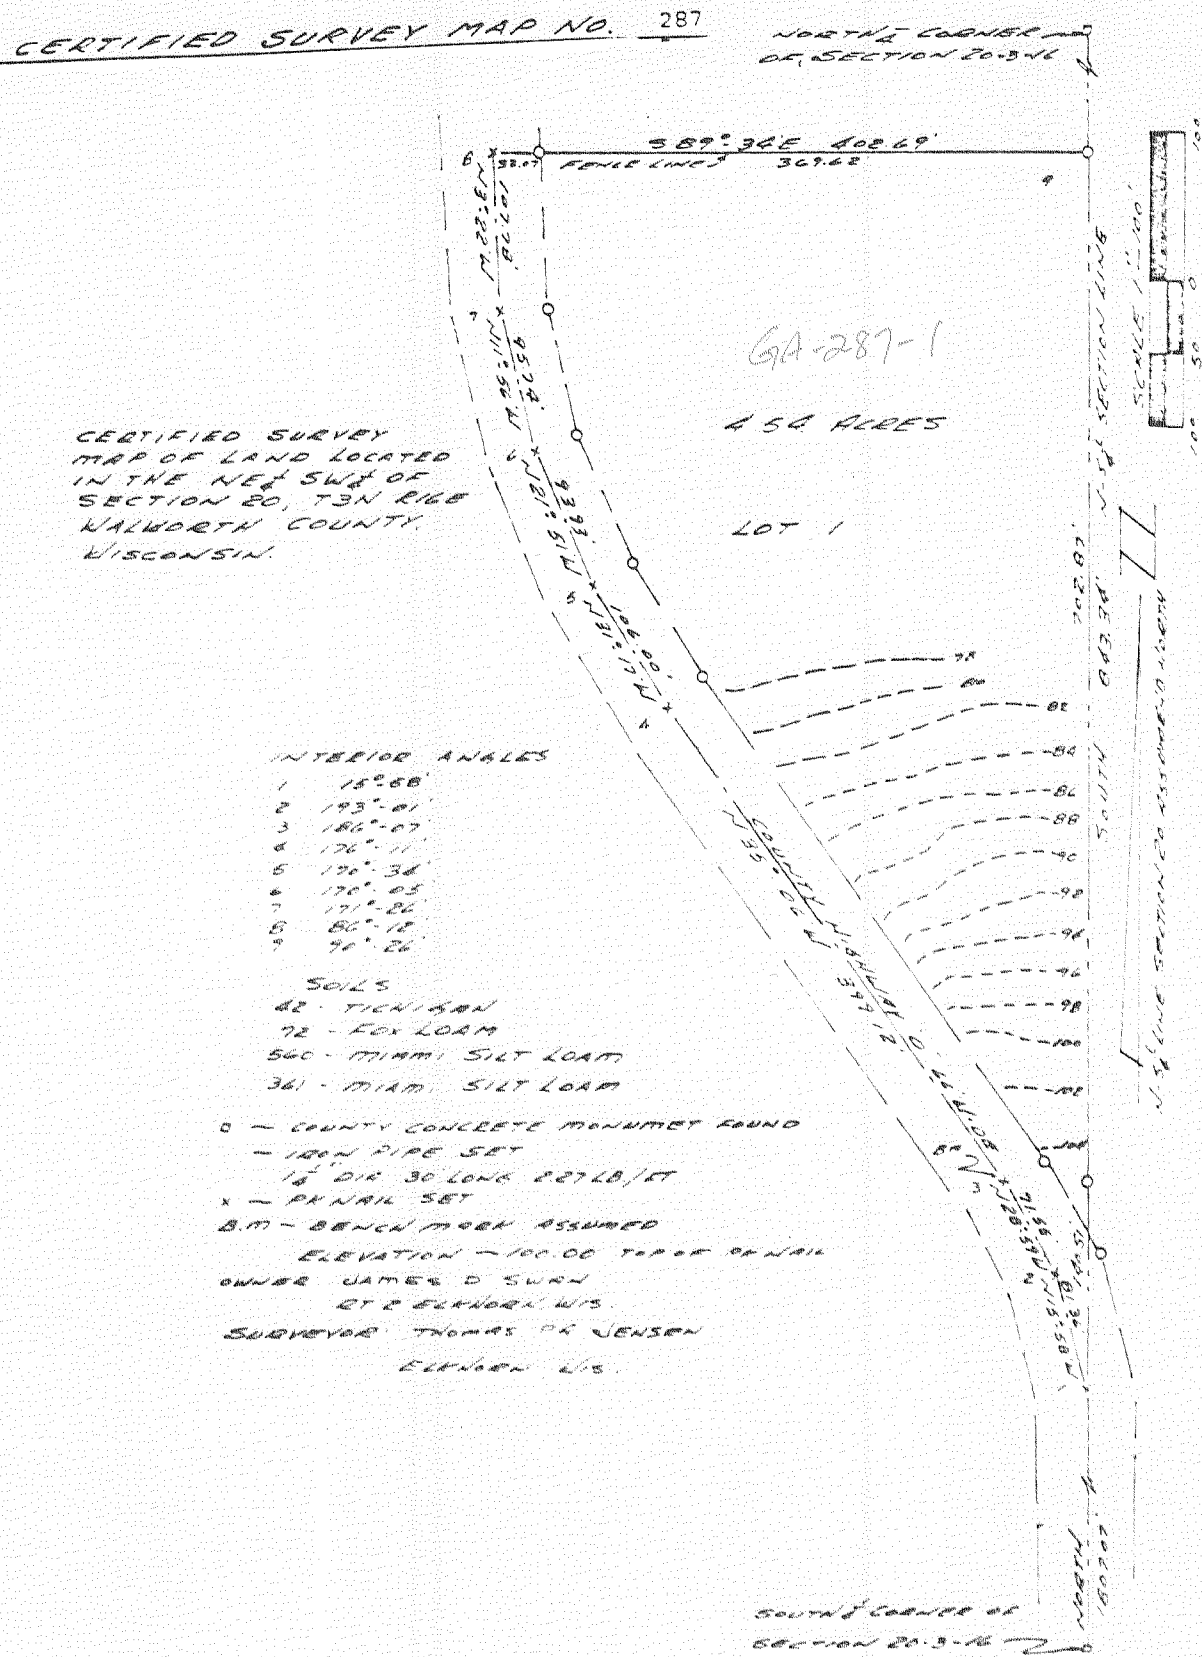 CERTIFIED SURVEY MAP NO. 287
NORTH ¼ CORNER
OF SECTION 20-3-16
S 89°-34'E 402.69'
8
33.07
FENCE LINES
369.62
9
N3°-22'W
107.78
7
N11°-56'W
95.74'
6
N21°-51'W
93.93'
5
N31°-17'W
106.00'
4
GA-287-1
4.54 ACRES
LOT 1
CERTIFIED SURVEY
MAP OF LAND LOCATED
IN THE NE¼ SW¼ OF
SECTION 20, T3N R16E
WALWORTH COUNTY,
WISCONSIN.
SCALE 1"=100'
100
0
50
100
N-S ¼ SECTION LINE
SOUTH 843.38'
702.87'
N-S ¼ LINE SECTION 20 ASSUMED NORTH
78
80
82
84
86
88
90
92
94
96
98
100
102
104
COUNTY HIGHWAY
INTERIOR ANGLES
1 15°-58'
2 193°-01'
3 186°-07'
4 176°-11'
5 170°-34'
6 170°-05'
7 171°-26'
8 86°-12'
9 90°-26'
SOILS
42 - TICHIGAN
72 - FOX LOAM
560 - MIAMI SILT LOAM
361 - MIAMI SILT LOAM
o — COUNTY CONCRETE MONUMET FOUND
— IRON PIPE SET
DIA 30 LONG 2.27 LB/FT
x — PK NAIL SET
B.M — BENCH MARK ASSUMED
ELEVATION — 100.00 TOP OF PK NAIL
OWNER JAMES D SWAN
RT 2 ELKHORN WIS.
SURVEYOR THOMAS JENSEN
ELKHORN WIS.
N28°-59'W
N15°-58'W
NORTH
SOUTH ¼ CORNER OF
SECTION 20-3-16